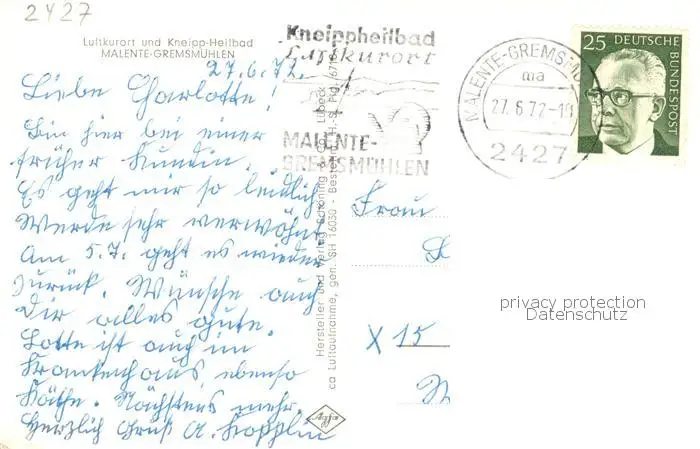 2427
Luftkurort und Kneipp-Heilbad
MALENTE-GREMSMÜHLEN
27.6.72.
Kneippheilbad
Luftkurort
MALENTE-
GREMSMÜHLEN
MALENTE-GREMSMÜ
ma
27.6.72-19
2427
25 DEUTSCHE
BUNDESPOST
Liebe Charlotte!
Bin hier bei einer
früher Kundin.
Es geht mir so leidlich
Werde sehr verwöhnt
Am 5.7. geht es wieder
zurück. Wünsche auch
Dir alles gute.
Lotte ist auch im
Krankenhaus, ebenso
Käthe. Nächstens mehr.
Herzlich Gruß A.
Hersteller und Verlag Schöning & Co. Lübeck
ca Luftaufnahme, gen. SH 16030 - Bestell
Agfa
Frau
X 15
privacy protection
Datenschutz